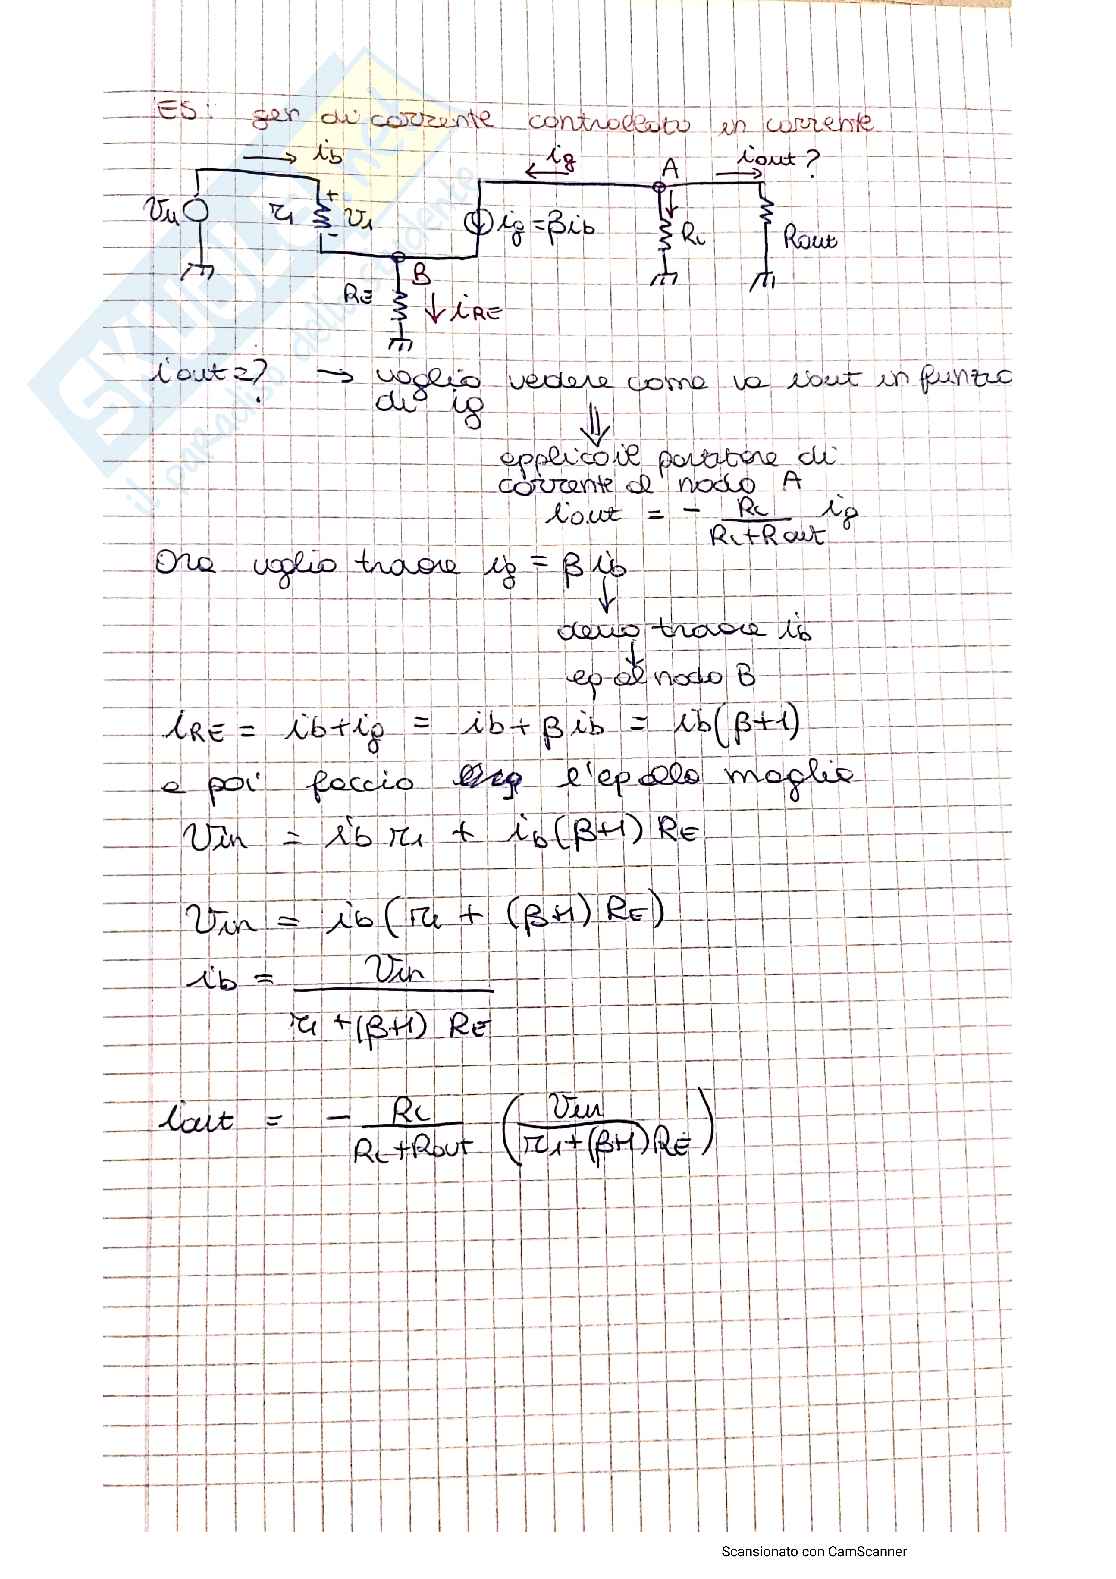 ES: gen di corrente controllato in corrente
ib ig A iout?
Vin r1 + V1 - ig=βib Rc Rout
B
RE iRE
iout=? → voglio vedere come va iout in funzio
di ig
⇓
applico il partitore di
corrente al nodo A
iout = - Rc/(Rc+Rout) ig
Ora voglio trovare ig = β ib
↓
devo trovare ib
↓
eq al nodo B
iRE = ib+ig = ib+βib = ib(β+1)
e poi faccio l'eq alla maglia
Vin = ib r1 + ib(β+1) RE
Vin = ib(r1 + (β+1) RE)
ib = Vin/(r1+(β+1) RE)
iout = - Rc/(Rc+Rout) (Vin/(r1+(β+1)RE))
SKUOLA.net
il paradiso dello studente
Scansionato con CamScanner